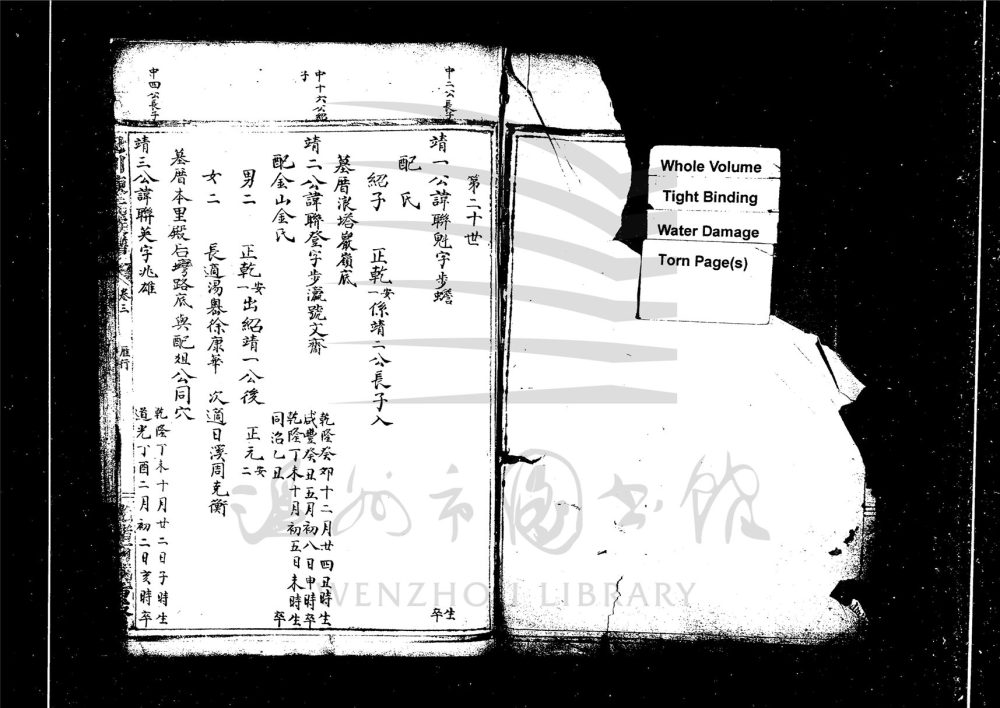 第二十世
中二公長子
靖一公諱聯魁字步蟾
生
卒
配 氏
紹子 正乾安一係靖二公長子入
墓厝浪塔巖嶺底
中十六公紹子
靖二公諱聯登字步瀛號文齋
乾隆癸卯十二月廿四丑時生
咸豐癸丑五月初八日申時卒
配金山金氏
乾隆丁未十月初五日未時生
同治乙丑 卒
男二 正乾安一出紹靖一公後 正元安二
女二 長適湯嶴徐康華 次適日溪周克衡
墓厝本里殿后灣路底與配姐公同穴
中四公長子
靖三公諱聯英字兆雄
乾隆丁未十月廿二日子時生
道光丁酉二月初二日亥時卒
卷三
雁行
Whole Volume
Tight Binding
Water Damage
Torn Page(s)
溫州市圖书館
WENZHOU LIBRARY